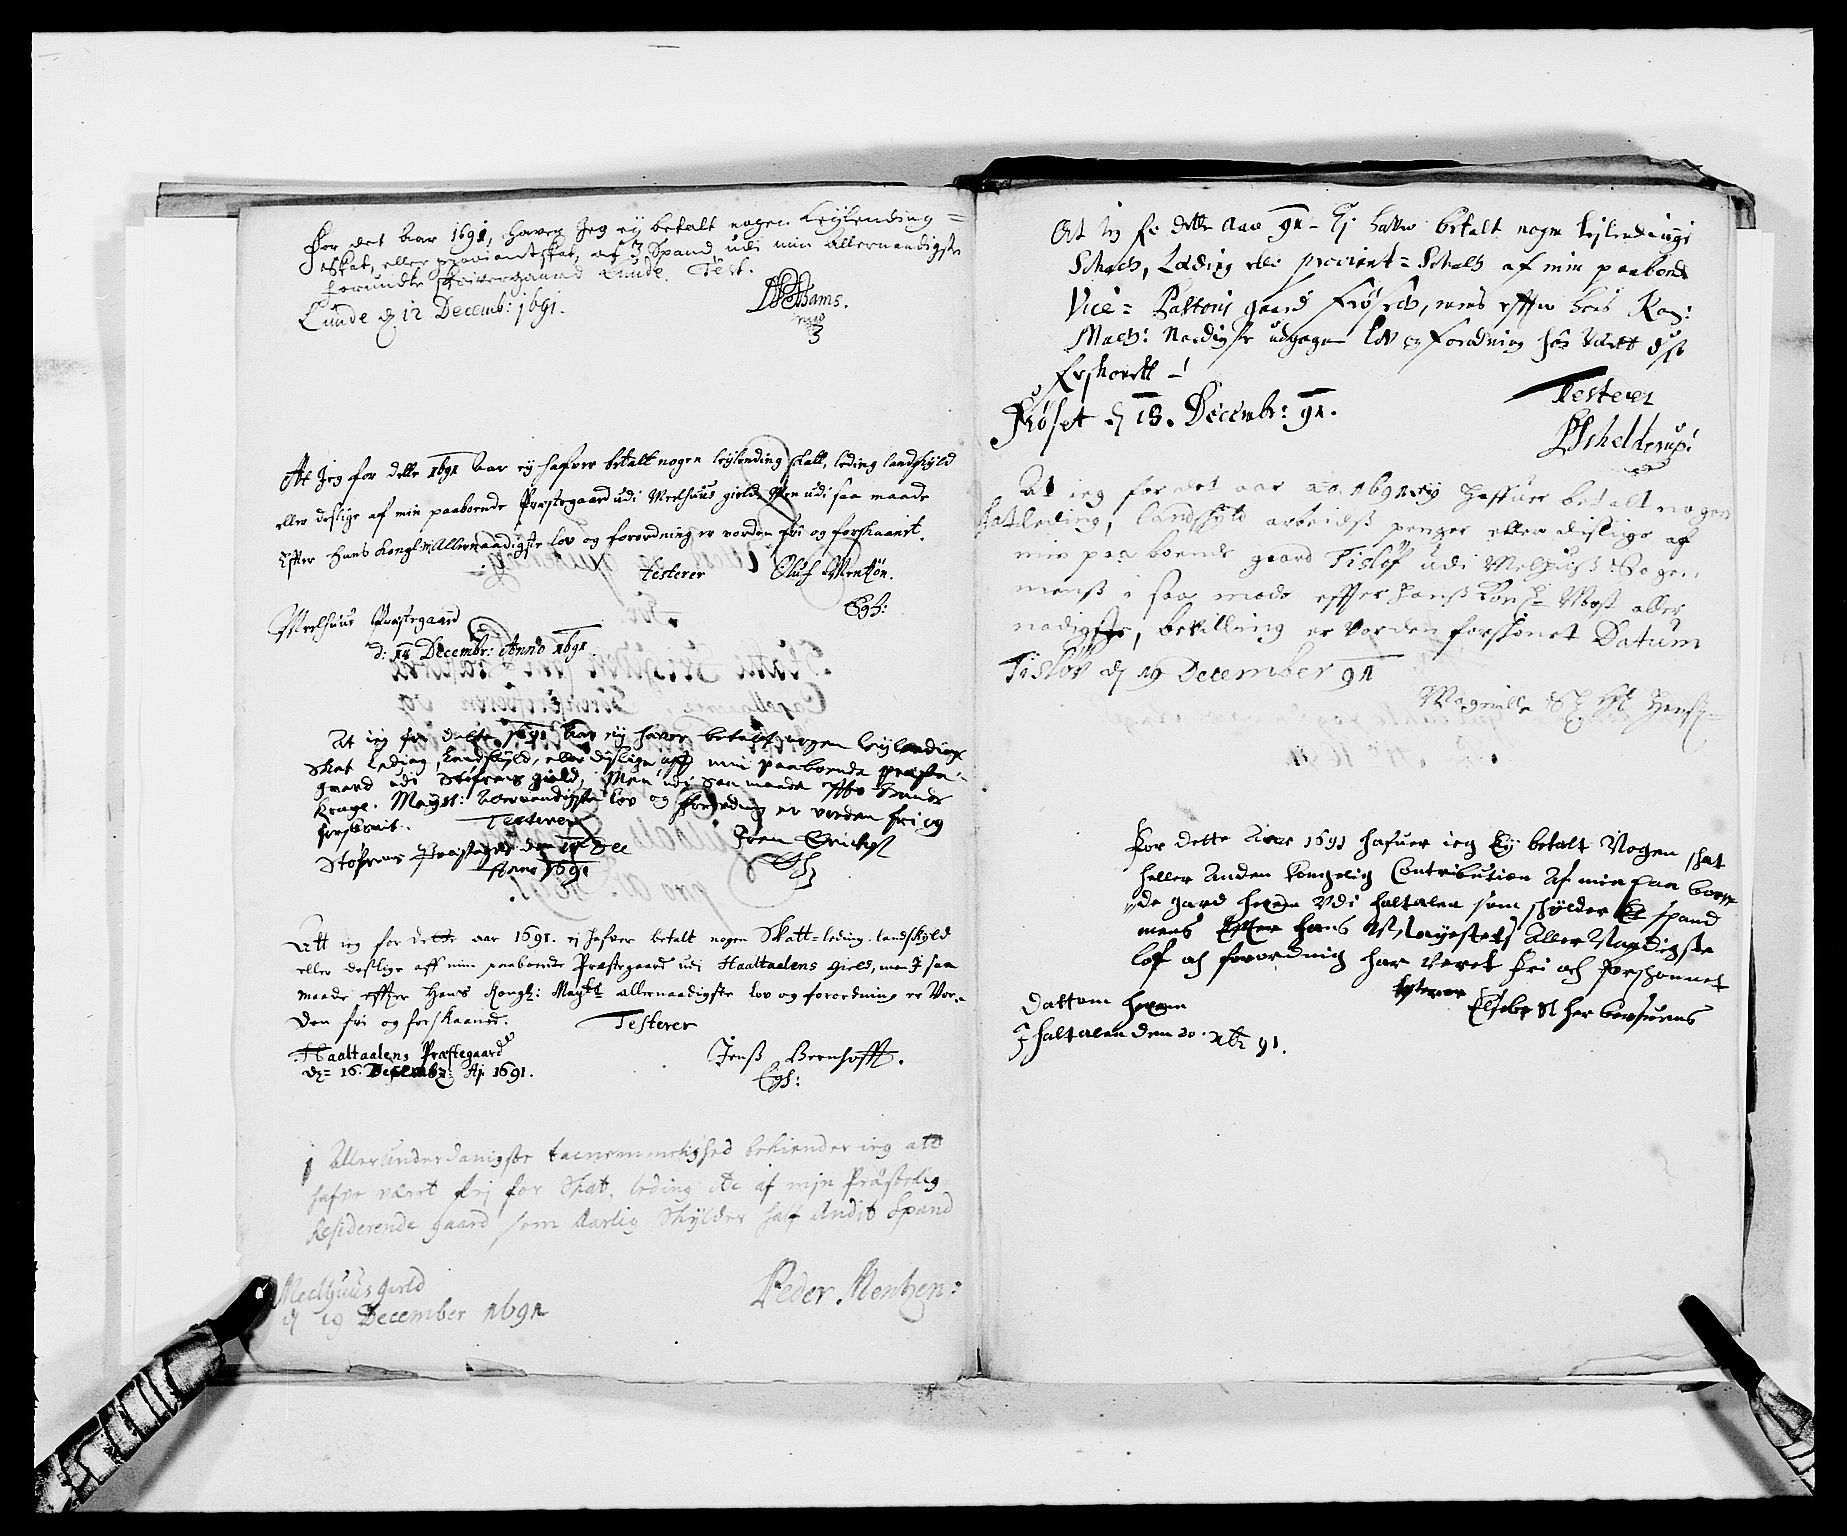 For det Aar 1691, hafver Jeg ej betalt nogen Leylending=
Skat, eller proviantskat, af 3 Spand udi min Allernaadigste
forundte skrivergaard Lunde. Test.
Lunde d 12 Decemb: 1691.
Ahams.
mpp
At Jeg for dette 1691 Aar ey hafver betalt nogen leylending skatt, leding landskyld
eller deslige af min paaboende Præstegaard udi Meelhuus gield, Men udi saa maade
Efter Hans Kongl: M Allernaadigste lov og forordning er vorden fri og forskaanet.
testerer Oluf Mentzøn.
Egh:
Meelhuus Præstegaard
d: 14 Decembr: Anno 1691.
At ieg for dette 1691 Aar ey haver betalt nogen leylending
Skat Leding, Landskyld, eller dislige aff min paaboende præste=
gaard udi Støfrens gield, Men udi saa maade effter Hands
Konge. Mayst: Allernaadigste lov og forordning er vorden fri og
forskonit. Testerer
Støfrens Præstegrd den 14 Dec Iven Erichsø
Anno 1691 Eh
Att ieg for dette aar 1691. ej hafver betalt nogen Skatt=leding, landskyld
eller deslige aff min paaboende Præstegaard udi Haaltaalens Gield, men I saa
maade effter Hans Kongl: Maytts allernaadigste Lov og forordning er Vor=
den fri og forskaaned. Testerer
Haaltaalens Præstegaard
d= 16. Decembr: Aj 1691. Jenss Bernhofft.
Egh:
I Allerunderdanigste tacnemmelighed bekiender ieg att
hafve været frj for Skat, leding etc af mjn Præstelig
Residerende gaard som Aarlig Skylder half Andit Spand
Meelhuus gield
d 19 December 1691 Peder Mentzen:
At ieg for dette Aar 91 Ej hafver betalt nogen leylendings
Schatt, Leding elle proviant=Schatt af min paaboende
Vice=Pastoris gaard Frøset, mens effter Hans Kog:
Maits: Naadigste udgagne Lov og Forordning har været der
forskonett
Testerer
Frøset d 13. Decembr: 91.
Schelderup
At ieg for det aar ao. 1691 ey haffuer betalt nogen
skatleding, landskyld arbeidss penger eller dislige af
min paa boende gaard Tisløf udi Melhuss Sogen,
menss i saa mode effter hanss Kon Mayst aller
nadigste, bevilling er vorden forskonet Datum
Tisløv d 19 December 91
Magnille
For dette Aar 1691 hafuer ieg Ey betalt Nogen skat
heller Anden kongelig Contribution Af min paa boen
de gard udi haltalen som skylder Et spand
mens Efter hans Mayestets Aller Naadigste
lof och forordnich har veret fri och forschonnet
testerer
Dattum
I haltalen den 20. Xbr 91.